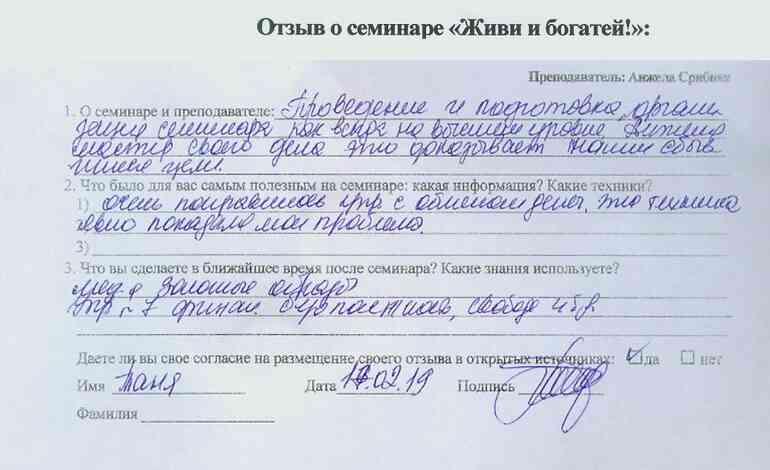 Отзыв о семинаре «Живи и богатей!»:
Преподаватель: Анжела Срибная
1. О семинаре и преподавателе: Проведение и подготовка, органи
зация семинара как всегда на высшем уровне
мастер своего дела это доказывает наши сбыв
шиеся цели.
2. Что было для вас самым полезным на семинаре: какая информация? Какие техники?
1) очень понравилось упр с обменом денег, эта техника
явно показала мои проблемы.
3)
3. Что вы сделаете в ближайшее время после семинара? Какие знания используете?
золотые
упр 7 финан. свобода и т.д.
Даете ли вы свое согласие на размещение своего отзыва в открытых источниках: да нет
Имя Таня Дата 17.02.19 Подпись
Фамилия